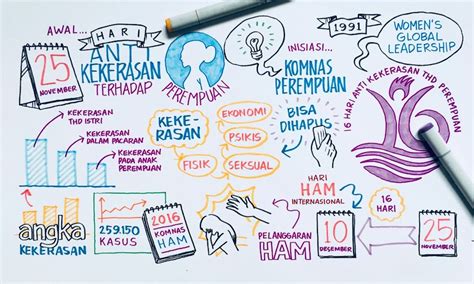 AWAL...
HARI
ANTI
KEKERASAN
TERHADAP
PEREMPUAN
25
NOVEMBER
INISIASI...
KOMNAS
PEREMPUAN
1991
WOMEN'S
GLOBAL
LEADERSHIP
16 HARI ANTI KEKERASAN THD PEREMPUAN
KEKERASAN
THD ISTRI
KEKERASAN
DALAM PACARAN
KEKERASAN
PADA ANAK
PEREMPUAN
KEKE-
RASAN
EKONOMI
PSIKIS
SEKSUAL
FISIK
BISA
DIHAPUS!
HARI
HAM
INTERNASIONAL
16
HARI
angka
KEKERASAN
259.150
KASUS
2016
KOMNAS
HAM
PELANGGARAN
HAM
10
DESEMBER
25
NOVEMBER